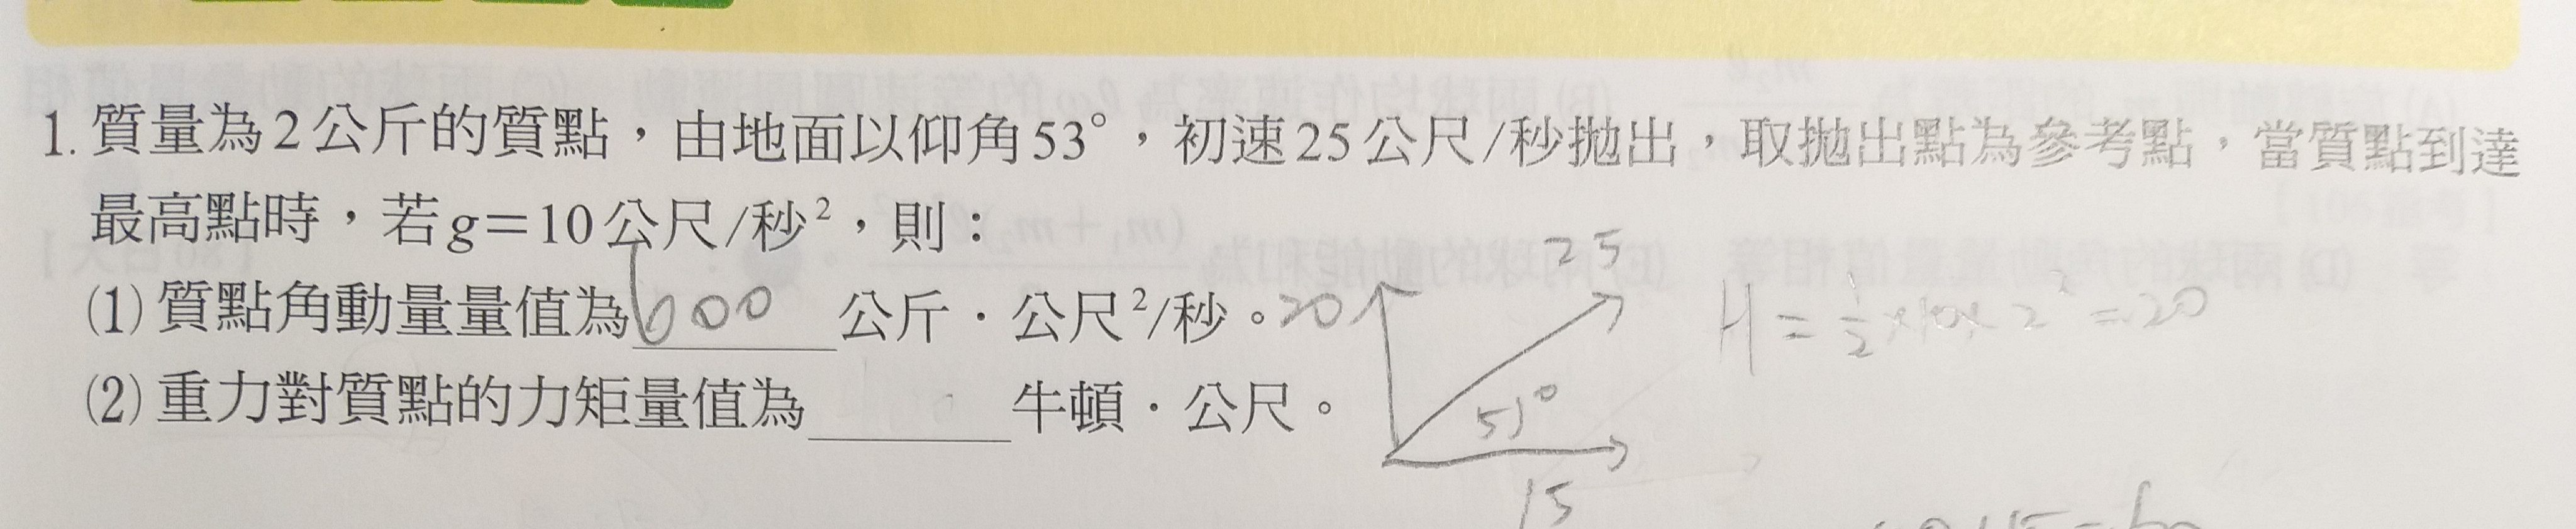 1. 質量為2公斤的質點，由地面以仰角53°，初速25公尺/秒拋出，取拋出點為參考點，當質點到達
最高點時，若g=10公尺/秒²，則：
25
(1) 質點角動量量值為600公斤．公尺²/秒。20
H = 1/2 × 10 × 2² = 20
(2) 重力對質點的力矩量值為____牛頓．公尺。
53°
15